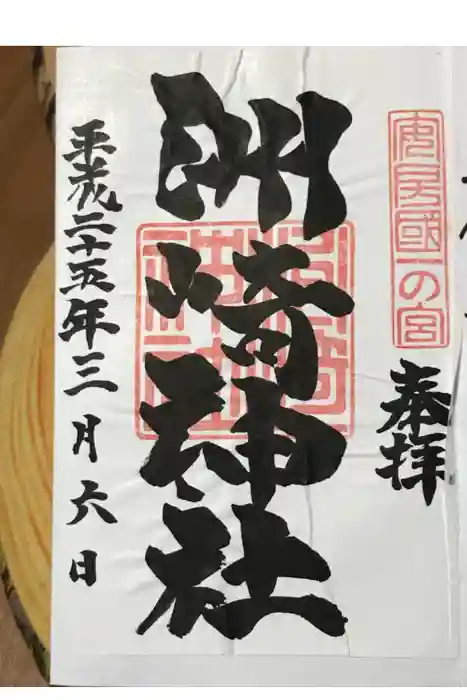 安房國一の宮
奉拝
洲崎神社
洲崎神社
平成二十五年三月六日